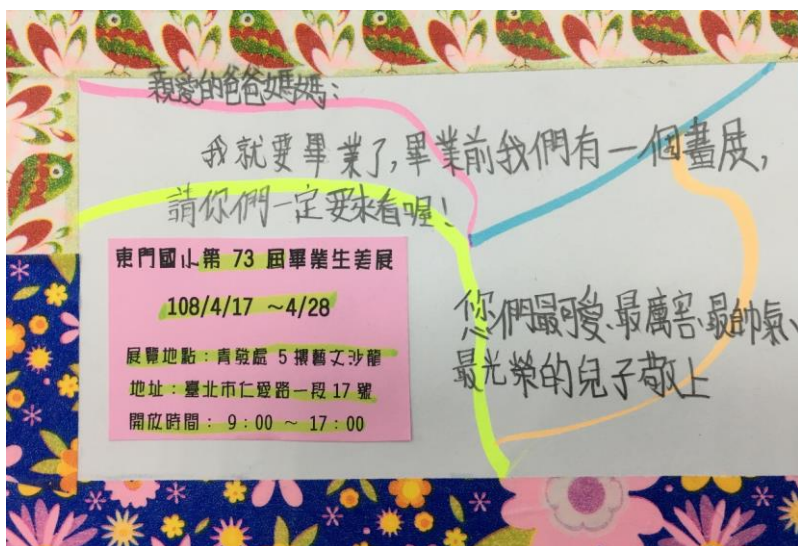 親愛的爸爸媽媽:
我就要畢業了,畢業前我們有一個畫展,
請你們一定要來看喔!
東門國小第 73 屆畢業生美展
108/4/17 ~4/28
展覽地點:青發處 5 樓藝文沙龍
地址:臺北市仁愛路一段 17 號
開放時間: 9:00 ~ 17:00
您們最可愛、最厲害、最帥氣、
最光榮的兒子敬上